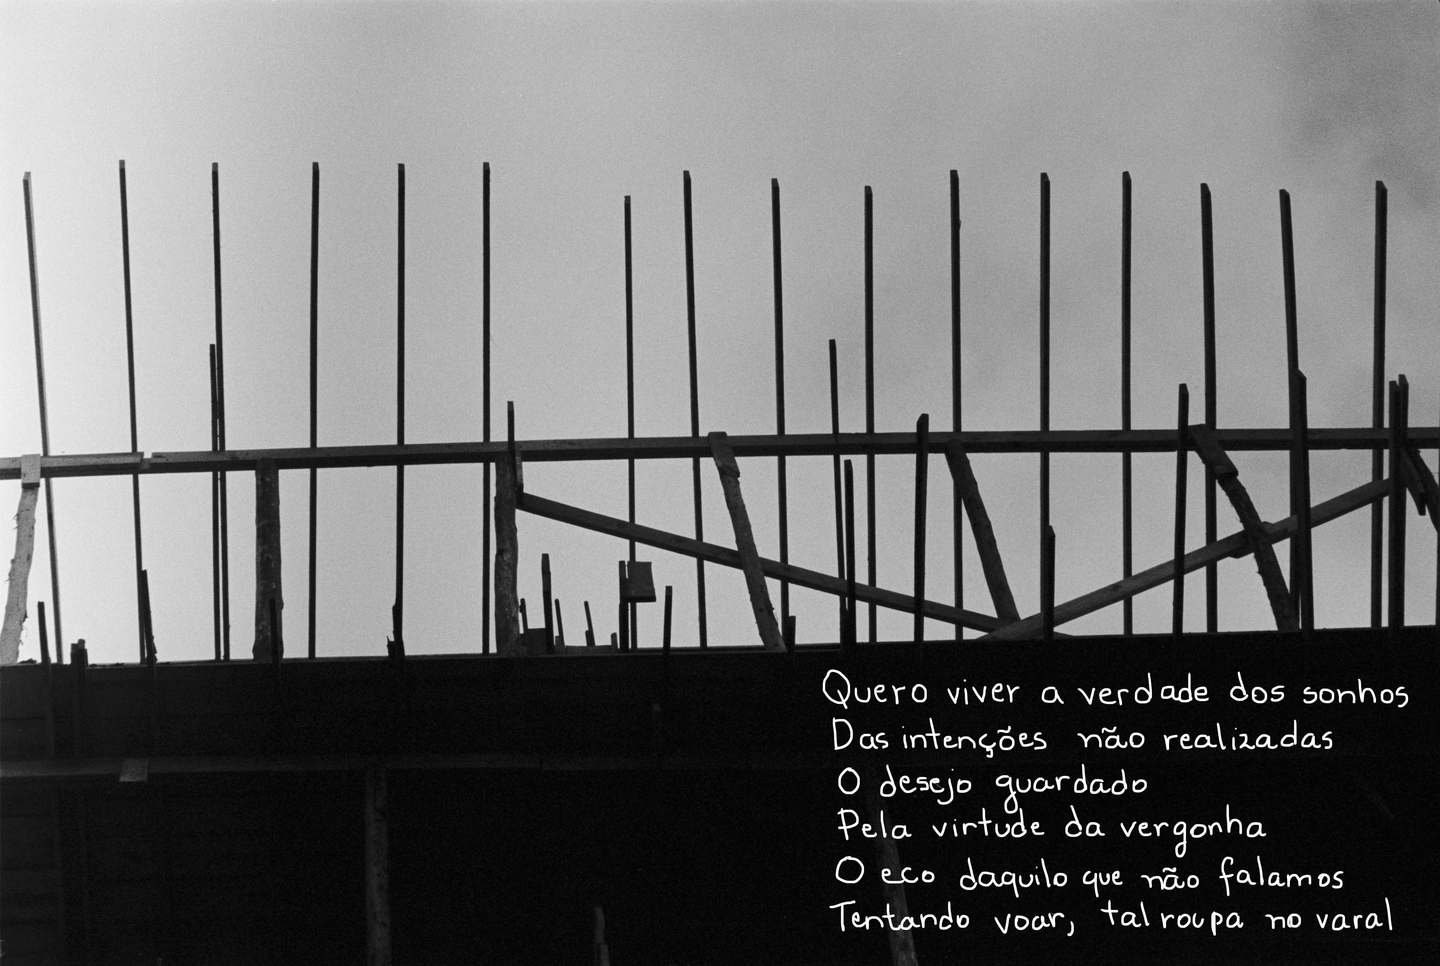 Quero viver a verdade dos sonhos
Das intenções não realizadas
O desejo guardado
Pela virtude da vergonha
O eco daquilo que não falamos
Tentando voar, tal roupa no varal